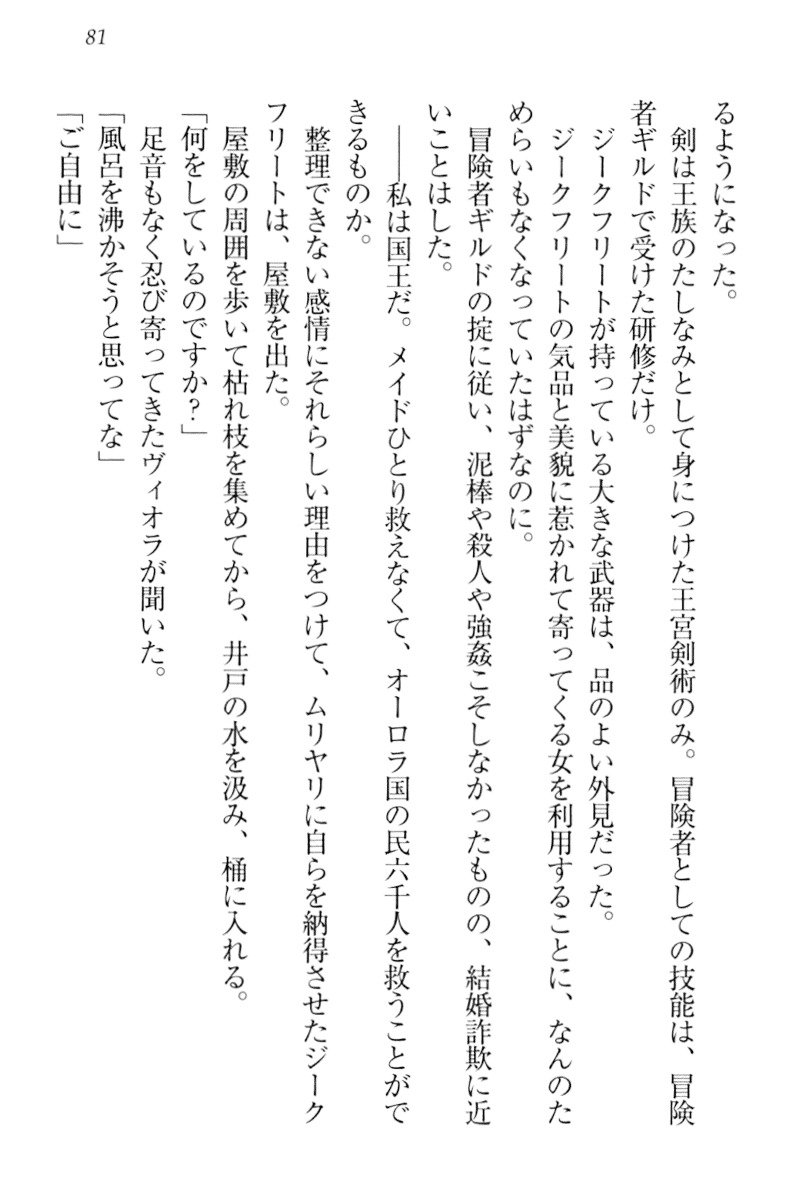 81
るようになった。
剣は王族のたしなみとして身につけた王宮剣術のみ。冒険者としての技能は、冒険
者ギルドで受けた研修だけ。
ジークフリートが持っている大きな武器は、品のよい外見だった。
ジークフリートの気品と美貌に惹かれて寄ってくる女を利用することに、なんのた
めらいもなくなっていたはずなのに。
冒険者ギルドの掟に従い、泥棒や殺人や強姦こそしなかったものの、結婚詐欺に近
いことはした。
――私は国王だ。メイドひとり救えなくて、オーロラ国の民六千人を救うことがで
きるものか。
整理できない感情にそれらしい理由をつけて、ムリヤリに自らを納得させたジーク
フリートは、屋敷を出た。
屋敷の周囲を歩いて枯れ枝を集めてから、井戸の水を汲み、桶に入れる。
「何をしているのですか?」
足音もなく忍び寄ってきたヴィオラが聞いた。
「風呂を沸かそうと思ってな」
「ご自由に」